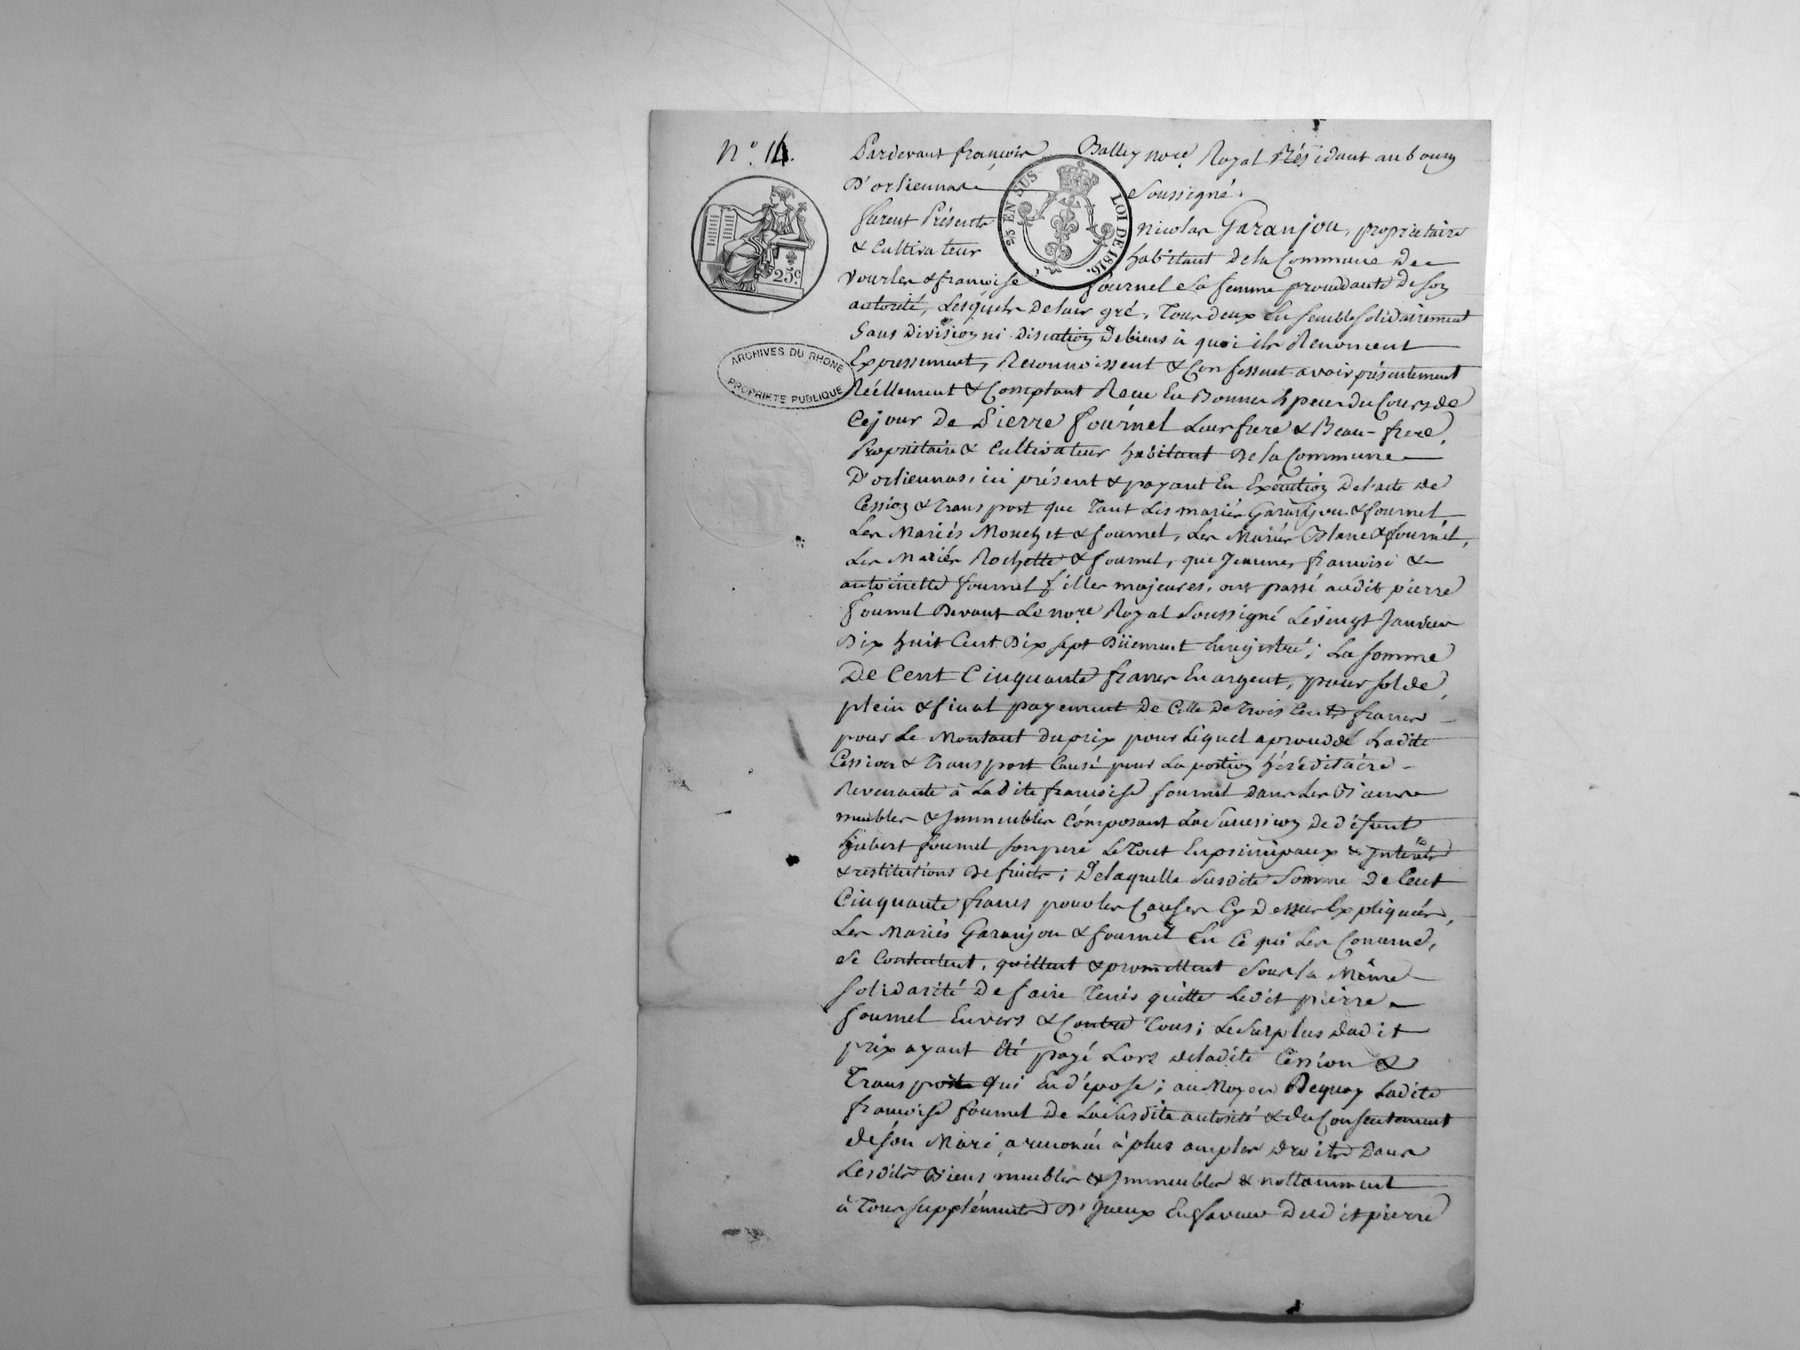 N.º 14.
25 c.
25 EN SUS
LOI DE 1816.
ARCHIVES DU RHONE
PROPRIETE PUBLIQUE
Pardevant françois Balley no.re Royal Résidant au bourg
D'orliennas Soussigné.
furent Présents Nicolas Garanjou, propriétaire
& Cultivateur habitant de la Commune De
Vourles & françoise fournel Sa femme procédante De son
autorité, Lesquels De leur gré, Tous deux Ensemble solidairement
Sans Division ni discution De biens à quoi ils Renoncent
Expressement, Reconnoissent & Confessent avoir présentement
Réëllement & Comptant Reçu En Bonnes Especes du Cours de
Ce jour De Pierre fournel Leur frere & Beau-frere,
Propriétaire & Cultivateur habitant De la Commune
D'orliennas, ici présent & payant En Exécution De l'acte de
Cession & Transport que Tant Les mariés Garanjou & fournel
Les Mariés Mouchet & fournel, Les Mariés Blanc & fournel,
Les Mariés Rochette & fournel, que Jeanne, françoise &
antoinette fournel filles majeures, ont passé audit pierre
fournel Devant Le no.re Royal Soussigné Le vingt Janvier
Dix huit Cent Dix sept Düement Enregistré; La somme
De Cent Cinquante francs En argent, pour solde,
plein & final payement De Celle De Trois Cents francs
pour Le Montant du prix pour Lequel a procédé Ladite
Cession & Transport Causé pour La portion héréditaire
Revenante à Ladite françoise fournel Dans Les Biens
meubles & Immeubles Composant La Succession De défunt
hubert fournel son pere Le Tout En principaux & Intérêts
& restitutions De fruits; De laquelle Susdite Somme De Cent
Cinquante francs pour les Causes Cy Dessus Expliquées,
Les Mariés Garanjou & fournel En Ce qui Les Concerne,
Se Contentent, quittent & promettent Sous la Même
Solidarité De faire Tenir quitte Ledit pierre
fournel Envers & Contre Tous; Le Surplus dudit
prix ayant été payé Lors De ladite Cession &
Transport qui En dépose; au Moyen De quoy Ladite
françoise fournel De La Susdite autorité & du Consentement
De son Mari, a renoncé à plus amples droits Dans
Lesdits Biens meubles & Immeubles & nottamment
à Tous suppléments D' Iceux En faveur Dudit pierre